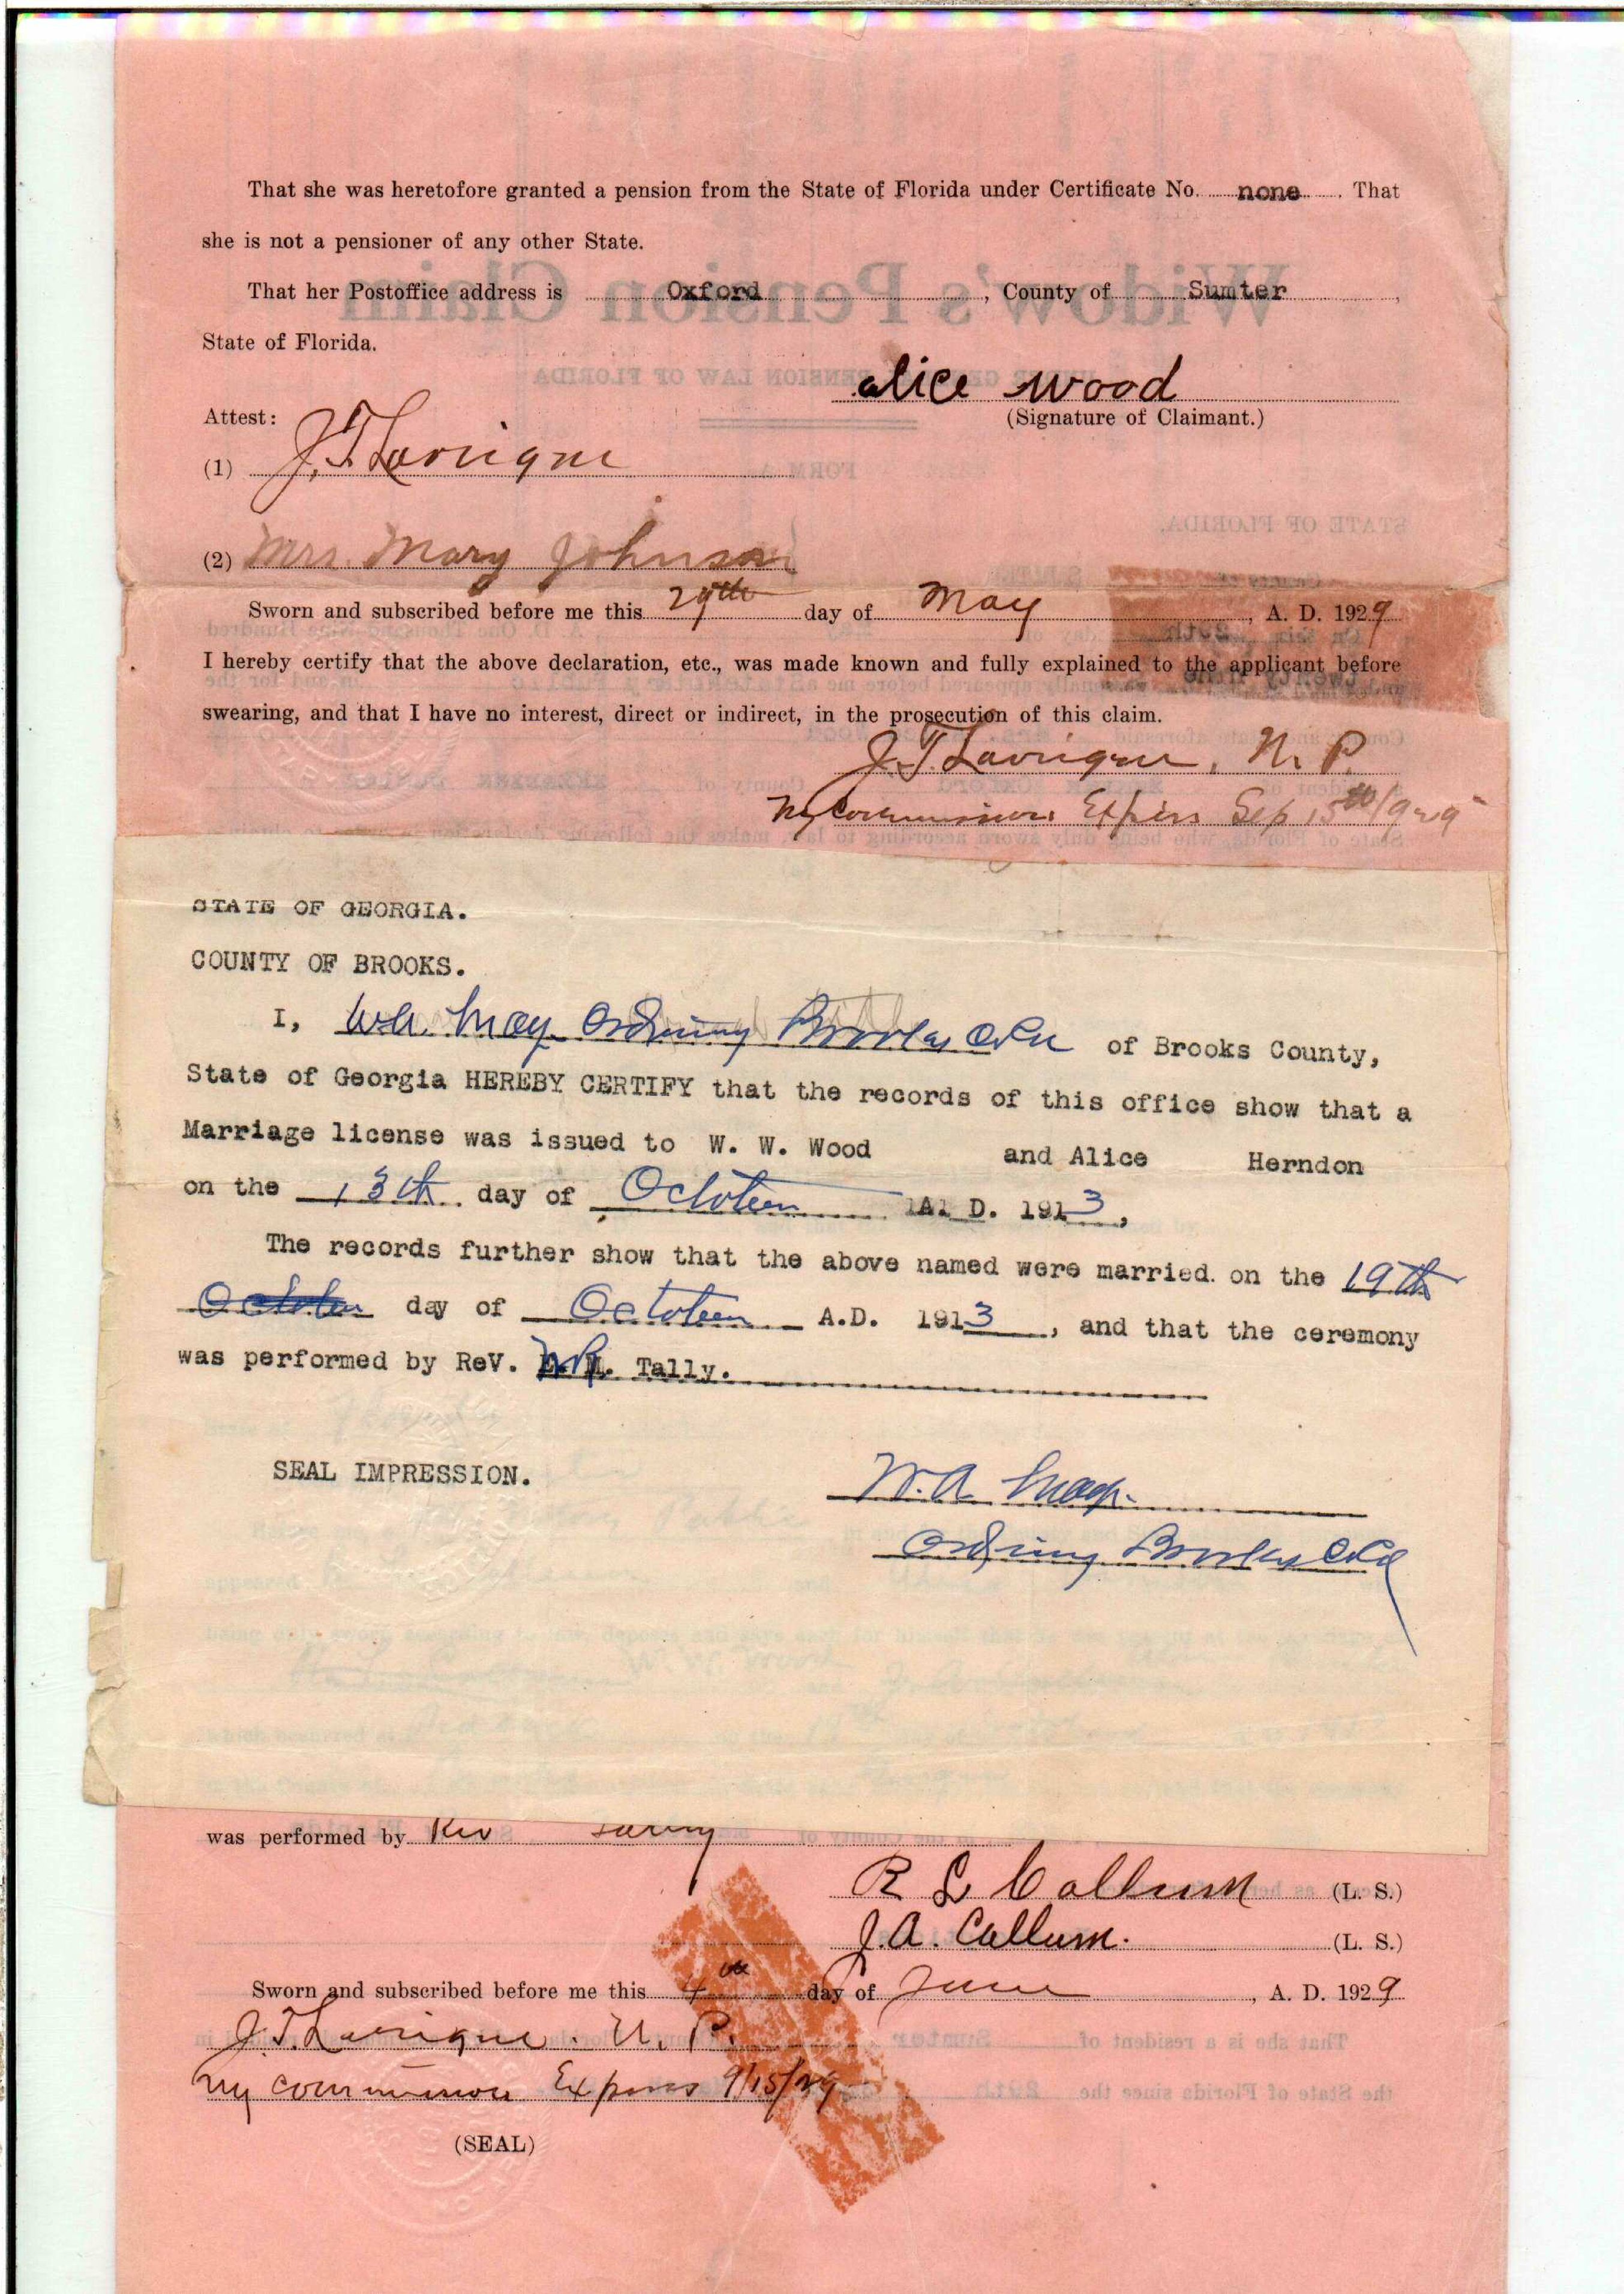 That she was heretofore granted a pension from the State of Florida under Certificate No. none. That
she is not a pensioner of any other State.
That her Postoffice address is Oxford, County of Sumter,
State of Florida.
alice wood
Attest: (Signature of Claimant.)
(1) J. T. Lavigne
(2) Mrs. Mary Johnson
Sworn and subscribed before me this 29th day of May, A. D. 1929
I hereby certify that the above declaration, etc., was made known and fully explained to the applicant before
swearing, and that I have no interest, direct or indirect, in the prosecution of this claim.
J. T. Lavigne, N. P.
My Commission Expires Sep 15th 1929
STATE OF GEORGIA.
COUNTY OF BROOKS.
I, W.A. May Ordinary Brooks of Brooks County,
State of Georgia HEREBY CERTIFY that the records of this office show that a
Marriage license was issued to W. W. Wood and Alice Herndon
on the 13th day of October A. D. 1913,
The records further show that the above named were married. on the 19th
day of October A.D. 1913, and that the ceremony
was performed by ReV. Tally.
SEAL IMPRESSION.
W. A. May
Ordinary Brooks
was performed by Rev
R L Callum (L. S.)
J. A. Callum. (L. S.)
Sworn and subscribed before me this 4th day of June, A. D. 1929
J. T. Lavigne. N. P.
My commission Expires 9/15/29
(SEAL)